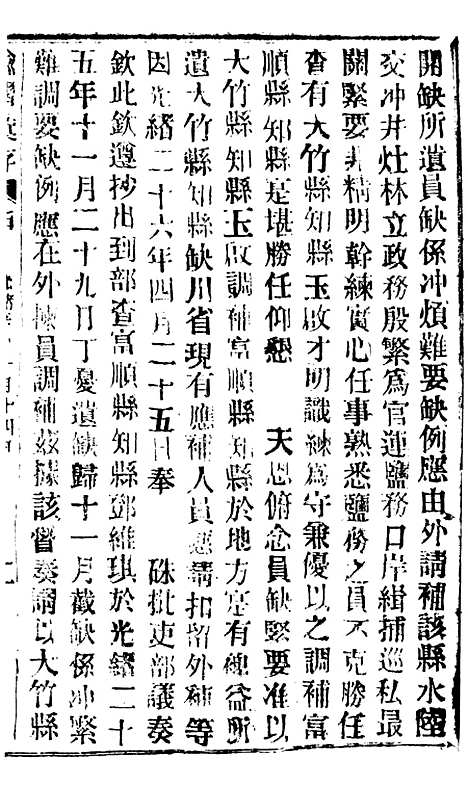 開缺所遺員缺係冲煩難要缺例應由外請補該縣水陸
交冲井灶林立政務殷繁爲官運鹽務口岸緝捕巡私最
關緊要非精明幹練實心任事熟悉鹽務之員不克勝任
查有大竹縣知縣玉啟才明識練爲守兼優以之調補富
順縣知縣寔堪勝任仰懇 天恩俯念員缺緊要准以
大竹縣知縣玉啟調補富順縣知縣於地方寔有裨益所
遺大竹縣知縣缺川省現有應補人員懇請扣留外補等
因光緒二十六年四月二十五日奉 硃批吏部議奏
欽此欽遵抄出到部查富順縣知縣鄧維琪於光緒二十
五年十一月二十九日丁憂遺缺歸十一月截缺係冲繁
難調要缺例應在外揀員調補茲據該督奏請以大竹縣